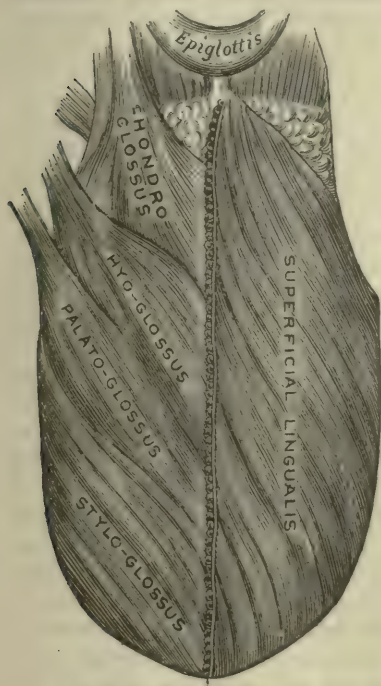 Epiglottis
CHONDRO
GLOSSUS
HYO-GLOSSUS
PALATO-GLOSSUS
STYLO-GLOSSUS
SUPERFICIAL LINGUALIS